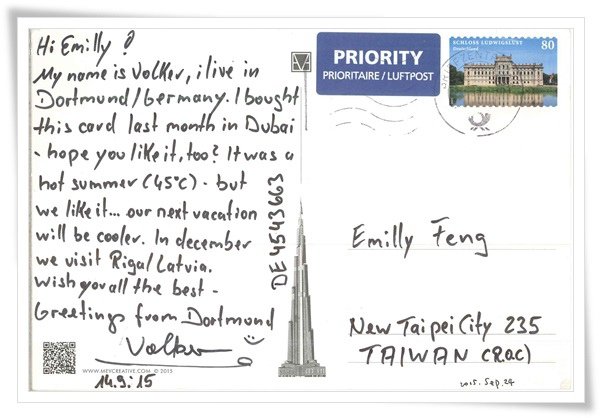 Hi Emilly !
My name is Volker, i live in
Dortmund/Germany. I bought
this card last month in Dubai
- hope you like it, too? It was a
hot summer (45°C) - but
we like it... our next vacation
will be cooler. In december
we visit Riga/Latvia.
Wish you all the best -
Greetings from Dortmund
Volker
14.9.15
WWW.MEVCREATIVE.COM © 2015
DE 4543663
PRIORITY
PRIORITAIRE / LUFTPOST
SCHLOSS LUDWIGSLUST 80
Deutschland
Emilly Feng
New Taipei City 235
TAIWAN (R.O.C)
2015. Sep. 24